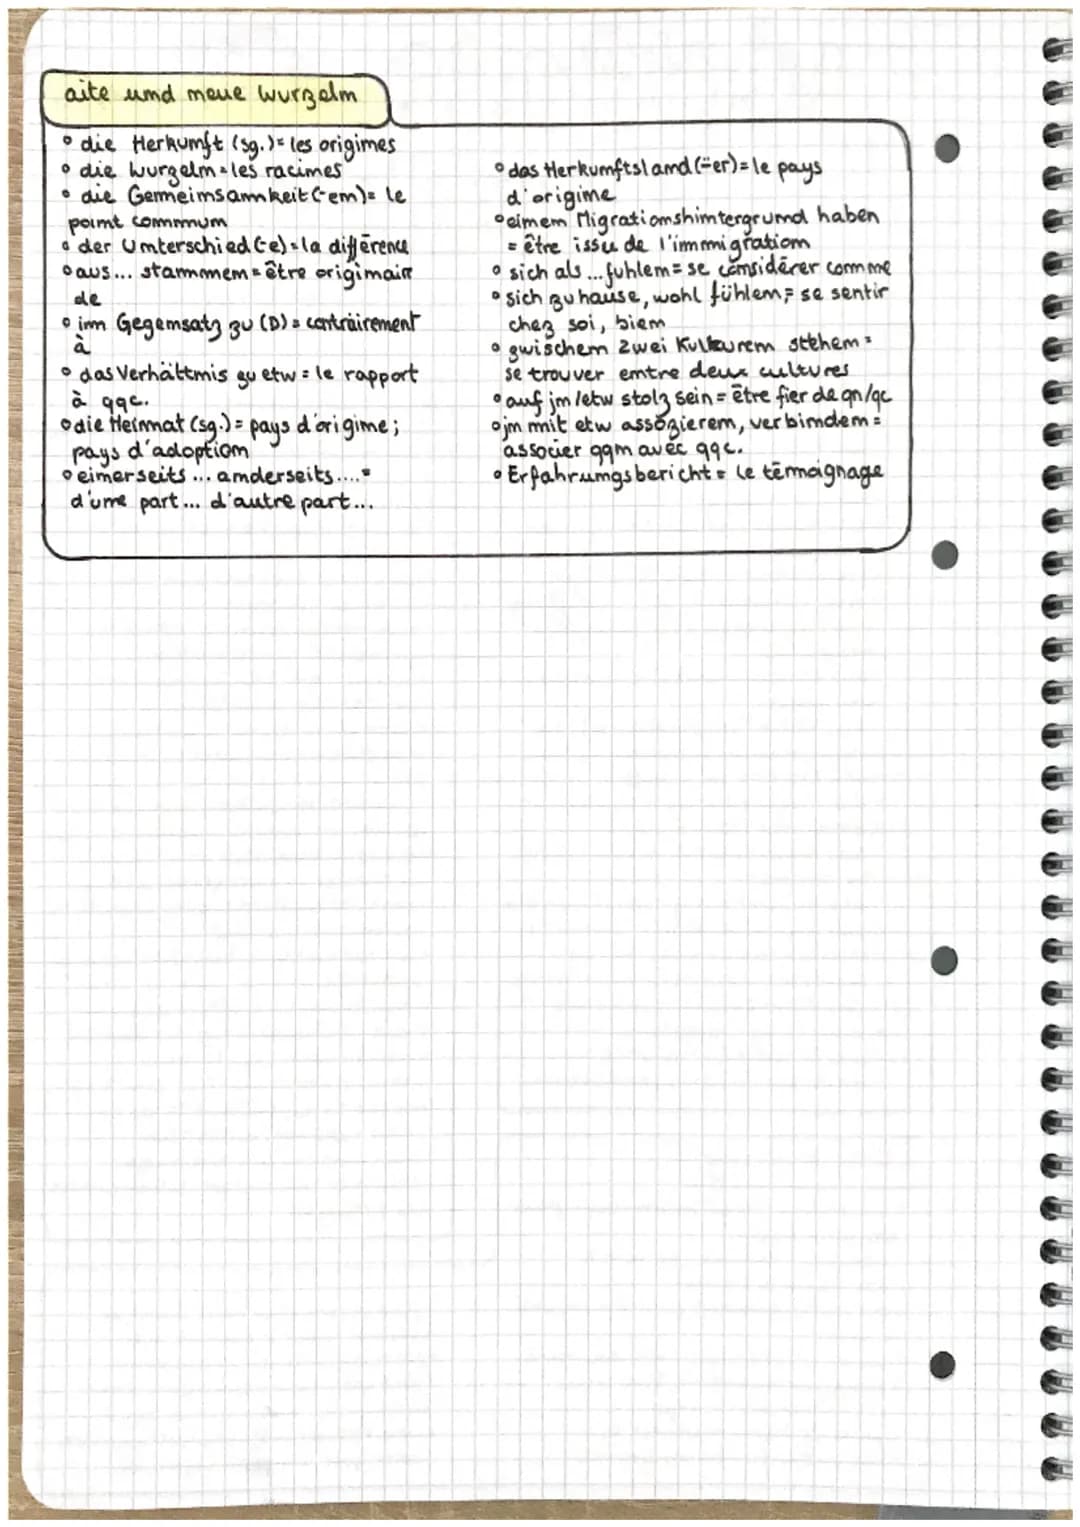 alte und neue Wurzeln
° die Herkunft (sg.) = les origines
° die Wurzeln = les racines
° die Gemeinsamkeit (-en) = le
point commun
° der Unterschied (-e) = la différence
° aus... stammen = être originaire
de
° im Gegensatz zu (D) = contrairement
à
° das Verhältnis zu etw = le rapport
à qqc.
° die Heimat (sg.) = pays d'origine;
pays d'adoption
° einerseits ... anderseits.... =
d'une part ... d'autre part...
° das Herkunftsland (-̈er) = le pays
d'origine
° einem Migrationshintergrund haben
= être issu de l'immigration
° sich als ... fühlen = se considérer comme
° sich zuhause, wohl fühlen = se sentir
chez soi, bien
° zwischen zwei Kulturen stehen =
se trouver entre deux cultures
° auf jm/etw stolz sein = être fier de qn/qc
° jn mit etw assozieren, verbinden =
associer qqn avec qqc.
° Erfahrungsbericht = le témoignage